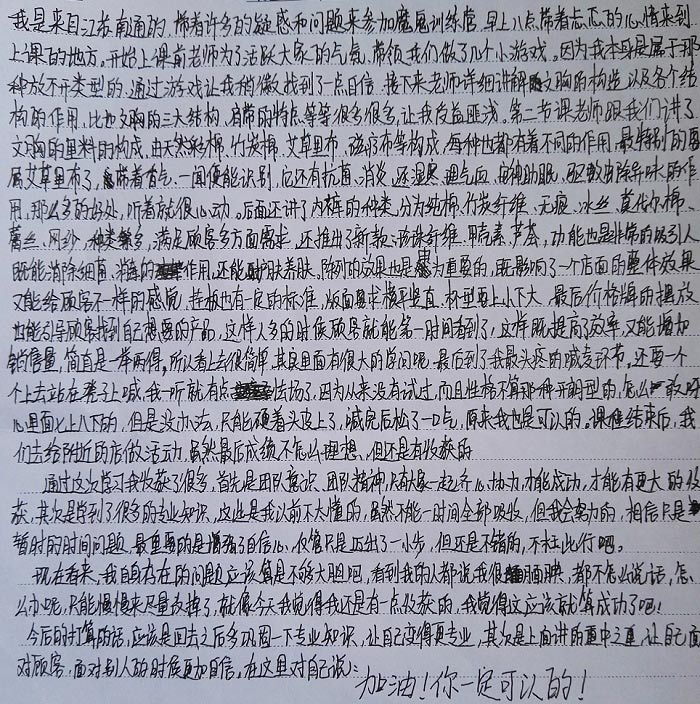 我是来自江苏南通的，带着许多的疑惑和问题来参加魔鬼训练营，早上八点带着忐忑的心情来到
上课的地方。开始上课前老师为了活跃大家的气氛，带领我们做了几个小游戏。因为我本身是属于那
种放不开类型的，通过游戏让我稍微找到了一点自信。接下来老师详细讲解文胸的构造以及各个结
构的作用，比如文胸的三大结构，肩带的特点等等很多很多，让我受益匪浅。第二节课老师跟我们讲了
文胸的里料的构成，由天然彩棉、竹炭棉、艾草里布、磁疗布等构成，每种也都有着不同的作用，最特别的当
属艾草里布了，带着香气，一闻便能识别，它还有抗菌、消炎、还湿寒、理气血、助眠、驱蚊去除异味的作
用，那么多的好处，听着就很心动。后面还讲了内裤的种类，分为纯棉、竹炭纤维、无痕、冰丝、莫代尔棉、
蕾丝、网纱，种类繁多，满足顾客多方面需求，还推出了新款、珍珠纤维、甲壳素、芦荟，功能也是非常的吸引人
既能消除细菌、消毒的作用，还能护肤养肤。陈列的效果也是尤为重要的，既影响了一个店面的整体效果
又能给顾客不一样的感觉，挂板也有一定的标准，版面要求横平竖直，杯型要上小下大，最后价格牌的摆放
也能引导顾客找到自己想要的产品，这样人多的时候顾客就能第一时间看到了，这样既提高了效率，又能增加
销售量，简直是一举两得。所以看上去很简单，其实里面有很大的学问呢。最后到了我最头疼的喊麦环节。还要一个
个上去站在凳子上喊，我一听就有点怯场了，因为从来没有试过，而且性格不算那种开朗型的，怎么敢呀
心里面七上八下的，但是没办法，只能硬着头皮上了，喊完后松了一口气，原来我也是可以的。课程结束后，我
们去给附近的店做活动，虽然最后成绩不怎么理想，但还是有收获的
通过这次学习我收获了很多，首先是团队意识、团队精神，只有大家一起齐心协力，才能成功，才能有更大的收
获，其次是学到了很多的专业知识，这些是我以前不大懂的，虽然不能一时间全部吸收，但我会努力的，相信只是
暂时的时间问题，最重要的是增强了自信心，仅管只是迈出了一小步，但还是不错的，不枉此行吧。
现在看来，我自身存在的问题应该算是不够大胆吧，看到我的人都说我很腼腆，都不怎么说话，怎
么办呢，只能慢慢来尽量发挥了，就像今天我觉得我还是有一点收获的，我觉得这应该就算成功了吧！
今后的打算的话，应该是回去之后多巩固一下专业知识，让自己变得更专业，其次是上面讲的重中之重，让自己面
对顾客，面对别人的时候更加自信，在这里对自己说：
加油！你一定可以的！